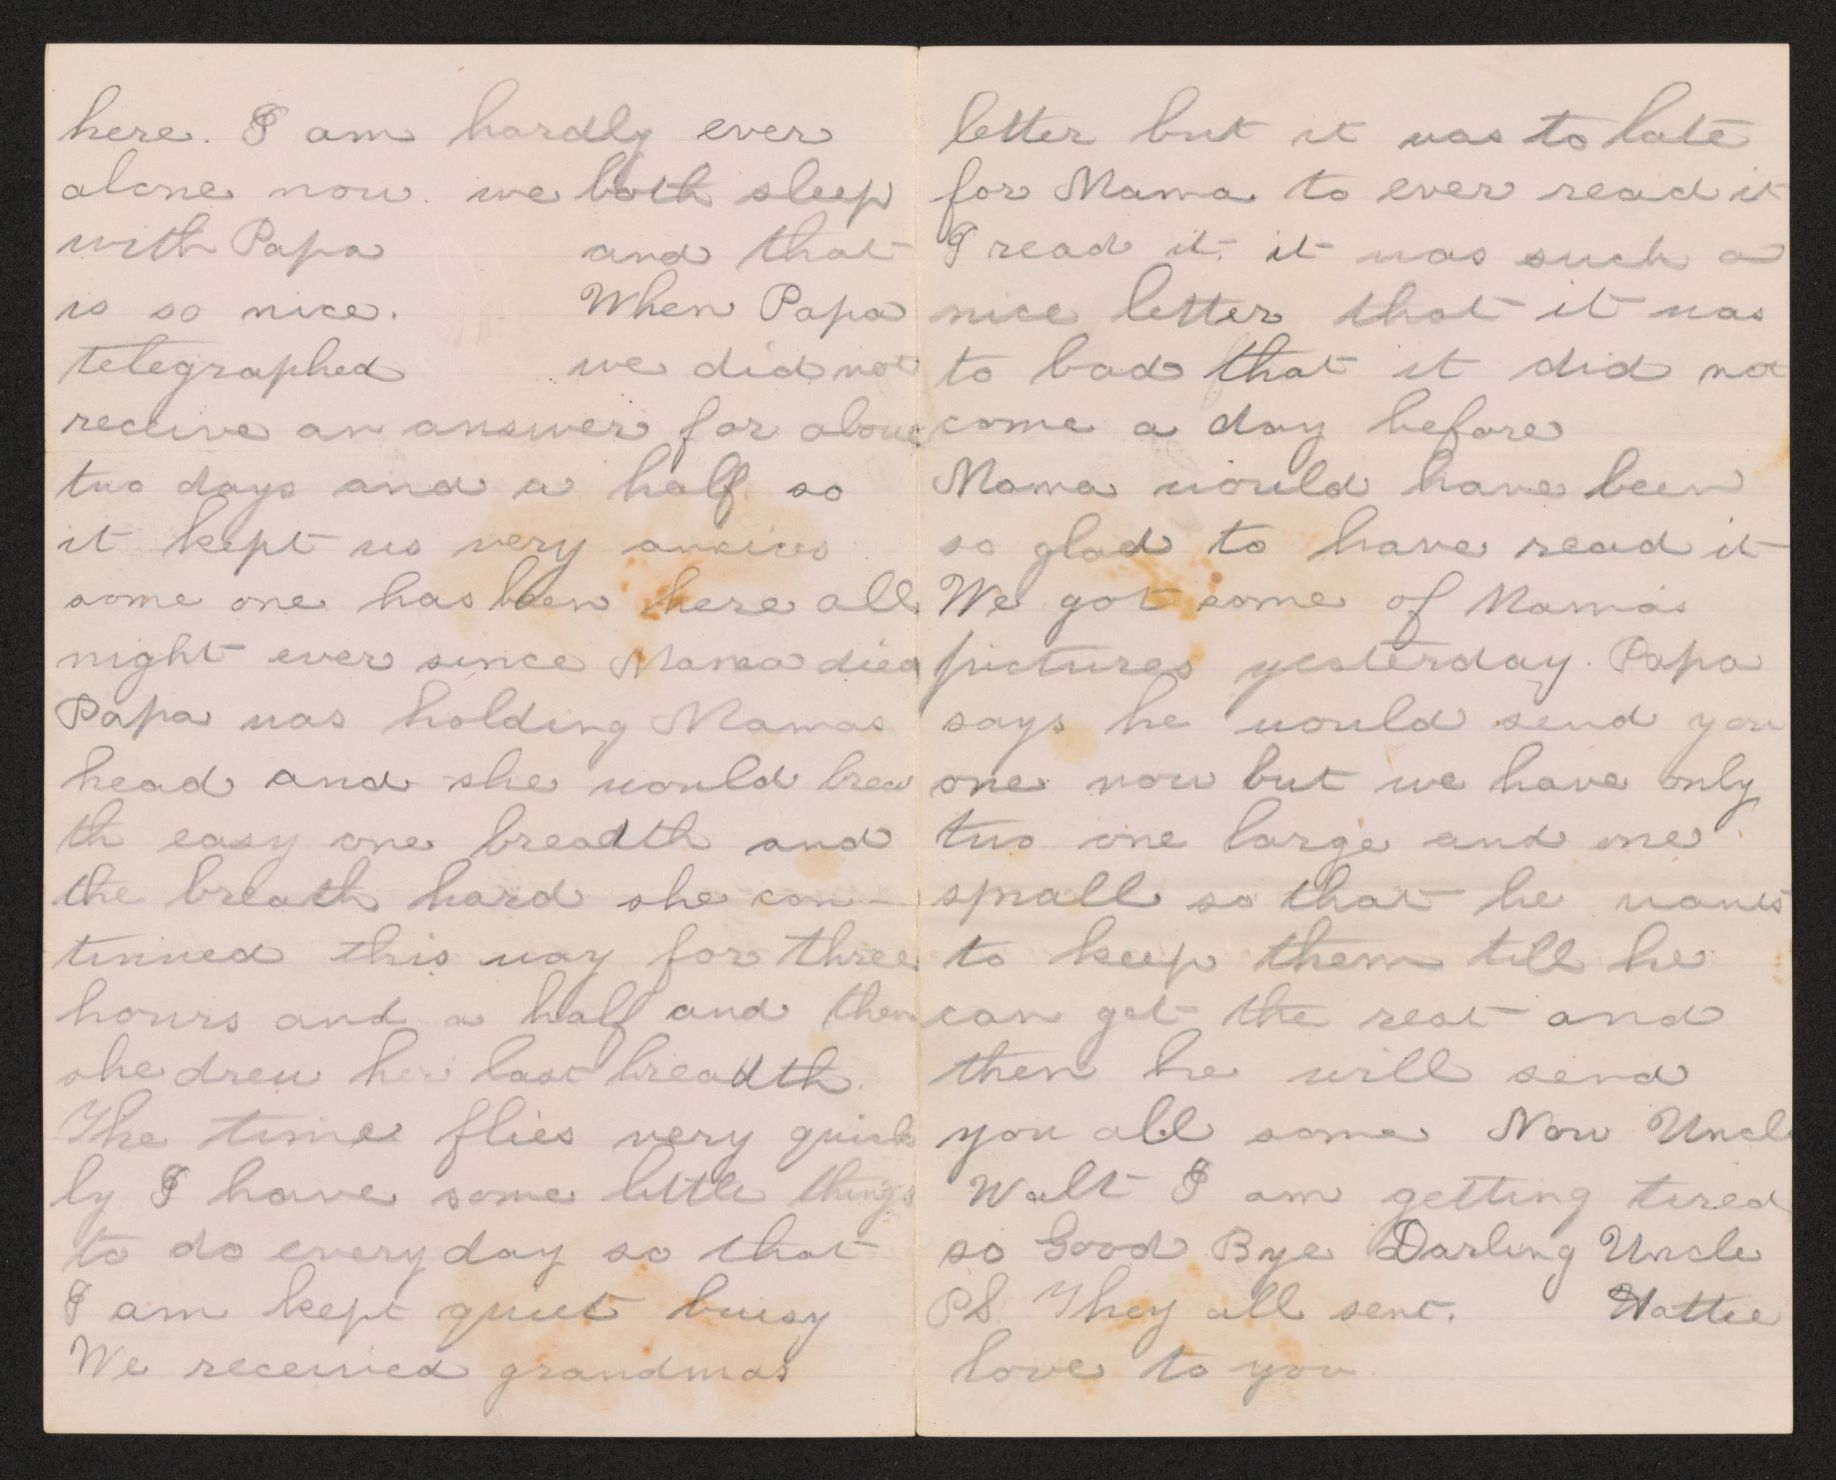 here. I am hardly ever
alone now. we both sleep
with Papa and that
is so nice. When Papa
telegraphed we did not
receive an answer for about
two days and a half so
it kept us very anxices
some one has been here all
night ever since Mama died
Papa was holding Mamas
head and she would brea
th easy one breadth and
the breath hard she con-
tinued this way for three
hours and a half and then
she drew her last breadth.
The time flies very quick
ly I have some little things
to do everyday so that
I am kept quiet buisy
We received grandmas
letter but it was to late
for Mama to ever read it
I read it. it was such a
nice letter that it was
to bad that it did not
come a day before
Mama would have been
so glad to have read it
We got some of Mamas
pictures yesterday. Papa
says he would send you
one now but we have only
two one large and one
small so that he wants
to keep them till he
can get the rest and
then he will send
you all some Now Uncle
Walt I am getting tired
so Good Bye Darling Uncle
PS. They all sent. Hattie
love to you